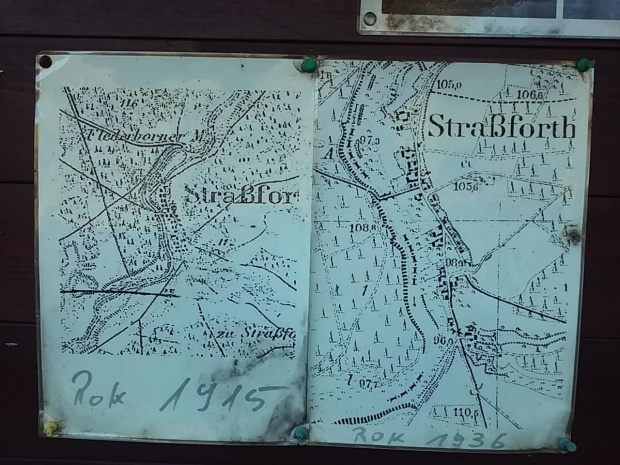 116
Flederborner M.
Straßfor
zu Straßfo
Rok 1915
105,0
106,6
Straßforth
97,3
105,6
108,8
96,0
97,7
110,5
Rok 1936